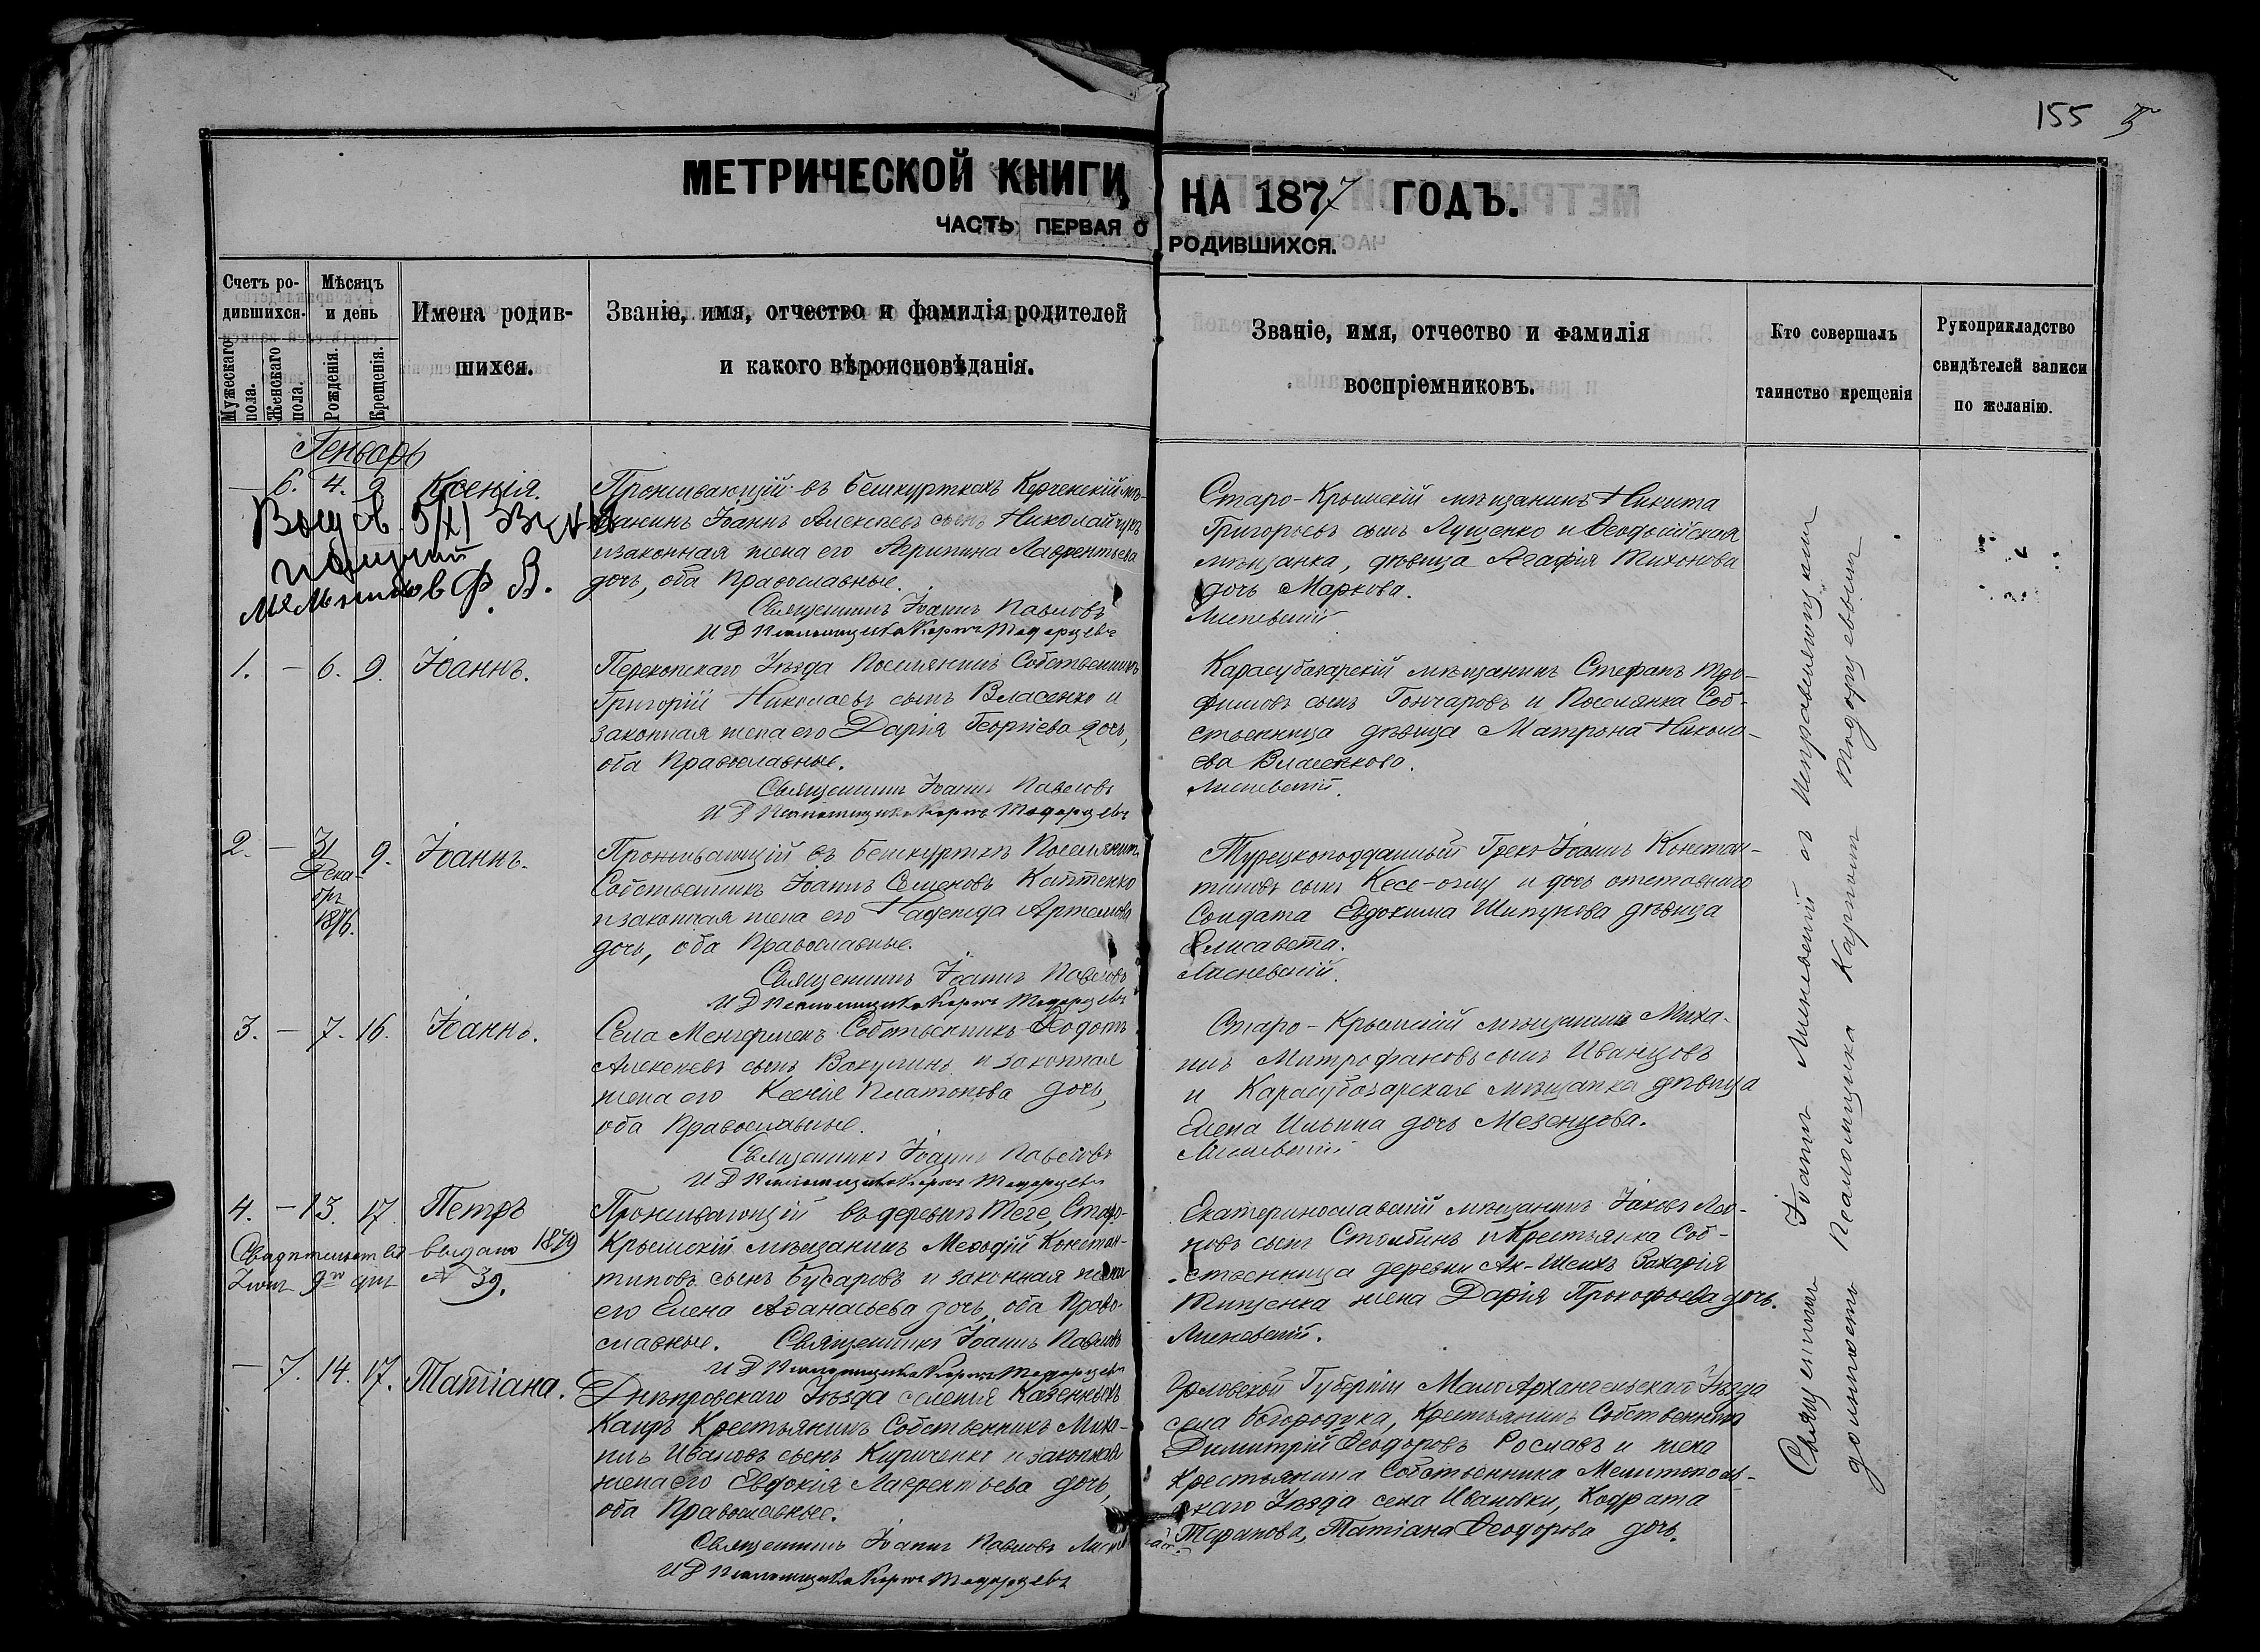 155
МЕТРИЧЕСКОЙ КНИГИ, НА 1877 ГОДЪ.
ЧАСТЬ ПЕРВАЯ О РОДИВШИХСЯ.
Счетъ ро-
дившихся.
Мужескаго пола.
Женскаго пола.
Мѣсяцъ
и день
Рожденія.
Крещенія.
Имена родив-
шихся.
Званіе, имя, отчество и фамилія родителей
и какого вѣроисповѣданія.
Званіе, имя, отчество и фамилія
воспріемниковъ.
Кто совершалъ
таинство крещенія
Рукоприкладство
свидѣтелей записи
по желанію.
Генварь
— 6. 4. 9. Ксенія.
Мельников Ф. В.
Проживающій въ Бешкурткахъ Керченскій мѣ-
щанинъ Іоаннъ Алексѣевъ сынъ Николайчукъ
и законная жена его Агрипина Лаврентьева
дочь, оба Православные.
Священникъ Іоаннъ Павловъ
Старо-Крымскій мѣщанинъ Никита
Григорьевъ сынъ Луценко и Ѳеодосійская
мѣщанка, дѣвица Агафія Тихонова
дочь Маркова.
Лисневскій
1. — 6. 9. Іоаннъ.
Перекопскаго Уѣзда Поселянинъ Собственникъ
Григорій Николаевъ сынъ Власенко и
законная жена его Дарія Георгіева дочь,
оба Православные.
Священникъ Іоаннъ Павловъ
Карасубазарскій мѣщанинъ Стефанъ Тро-
фимовъ сынъ Гончаровъ и Поселянка Соб-
ственница дѣвица Матрона Никола-
ева Власенкова.
Лисневскій.
2. — 31 Дека-
бря
1876.
9. Іоаннъ.
Проживающій въ Бешкурткѣ Поселянинъ
Собственникъ Іоаннъ Семеновъ Каптенко
и законная жена его Надежда Артемова
дочь, оба Православные.
Священникъ Іоаннъ Павловъ
Турецкоподданный Грекъ Іоаннъ Констан-
тиновъ сынъ Кесе-оглу и дочь отставного
Солдата Евдокима Шипунова дѣвица
Елисавета.
Лисневскій.
3. — 7. 16. Іоаннъ.
Села Менгерменъ Собственникъ Ѳедотъ
Алексѣевъ сынъ Вакулинъ и законная
жена его Ксенія Платонова дочь,
оба Православные.
Священникъ Іоаннъ Павловъ
Старо-Крымскій мѣщанинъ Миха-
илъ Митрофановъ сынъ Иванцовъ
и Карасубазарская мѣщанка дѣвица
Елена Ильина дочь Мезенцова.
Лисневскій
4. — 13. 17. Петръ
Свидѣтельство выдано 1879
№ 39.
Проживающій въ деревнѣ Теге, Старо-
Крымскій мѣщанинъ Меѳодій Констан-
тиновъ сынъ Бусаровъ и законная жена
его Елена Аѳанасьева дочь, оба Право-
славные. Священникъ Іоаннъ Павловъ
Екатеринославскій мѣщанинъ Іаковъ Ло-
новъ сынъ Столбинъ и Крестьянка Соб-
ственница деревни Ак-Шеихъ Захарія
Тищенка жена Дарія Прокофьева дочь.
Лисневскій.
— 7. 14. 17. Татіана.
Днѣпровскаго Уѣзда селенія Казенныхъ
Каиръ Крестьянинъ Собственникъ Миха-
илъ Ивановъ сынъ Кириченко и законная
жена его Евдокія Лаврентьева дочь,
оба Православные.
Священникъ Іоаннъ Павловъ
Орловской Губерніи МалоАрхангельскаго Уѣзда
села Богородука, Крестьянинъ Собственникъ
Димитрій Ѳеодоровъ Рославъ и жена
Крестьянина Собственника Мелитополь-
скаго Уѣзда села Ивановки, Кодрата
Таранова, Татіана Ѳеодорова дочь.
Священникъ Іоаннъ Лисневскій съ Исправляющимъ
должность Псаломщика Карпомъ